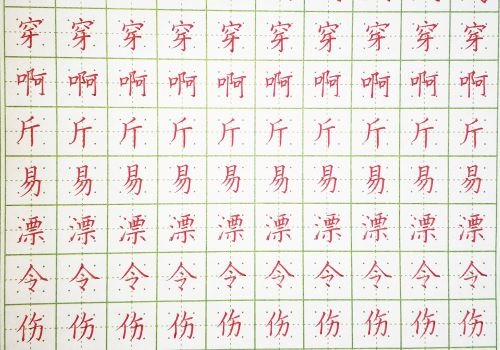 穿穿穿穿穿穿穿穿穿穿
啊啊啊啊啊啊啊啊啊啊
斤斤斤斤斤斤斤斤斤斤
易易易易易易易易易易
漂漂漂漂漂漂漂漂漂漂
令令令令令令令令令令
伤伤伤伤伤伤伤伤伤伤